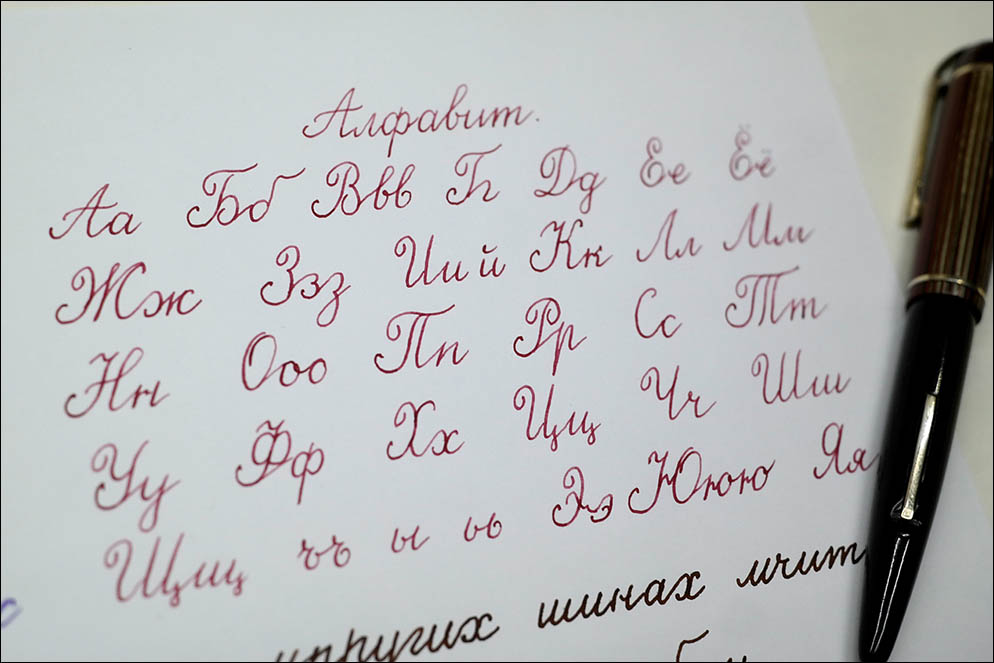 Алфавит.
Аа Бб Ввв Гг Дд Ее Ёё
Жж Ззз Иий Кк Лл Мм
Нн Ооо Пп Рр Сс Тт
Уу Фф Хх Цц Чч Шш
Щщщ ъъ ы ьь Ээ Ююю Яя
упругих шинах мчит